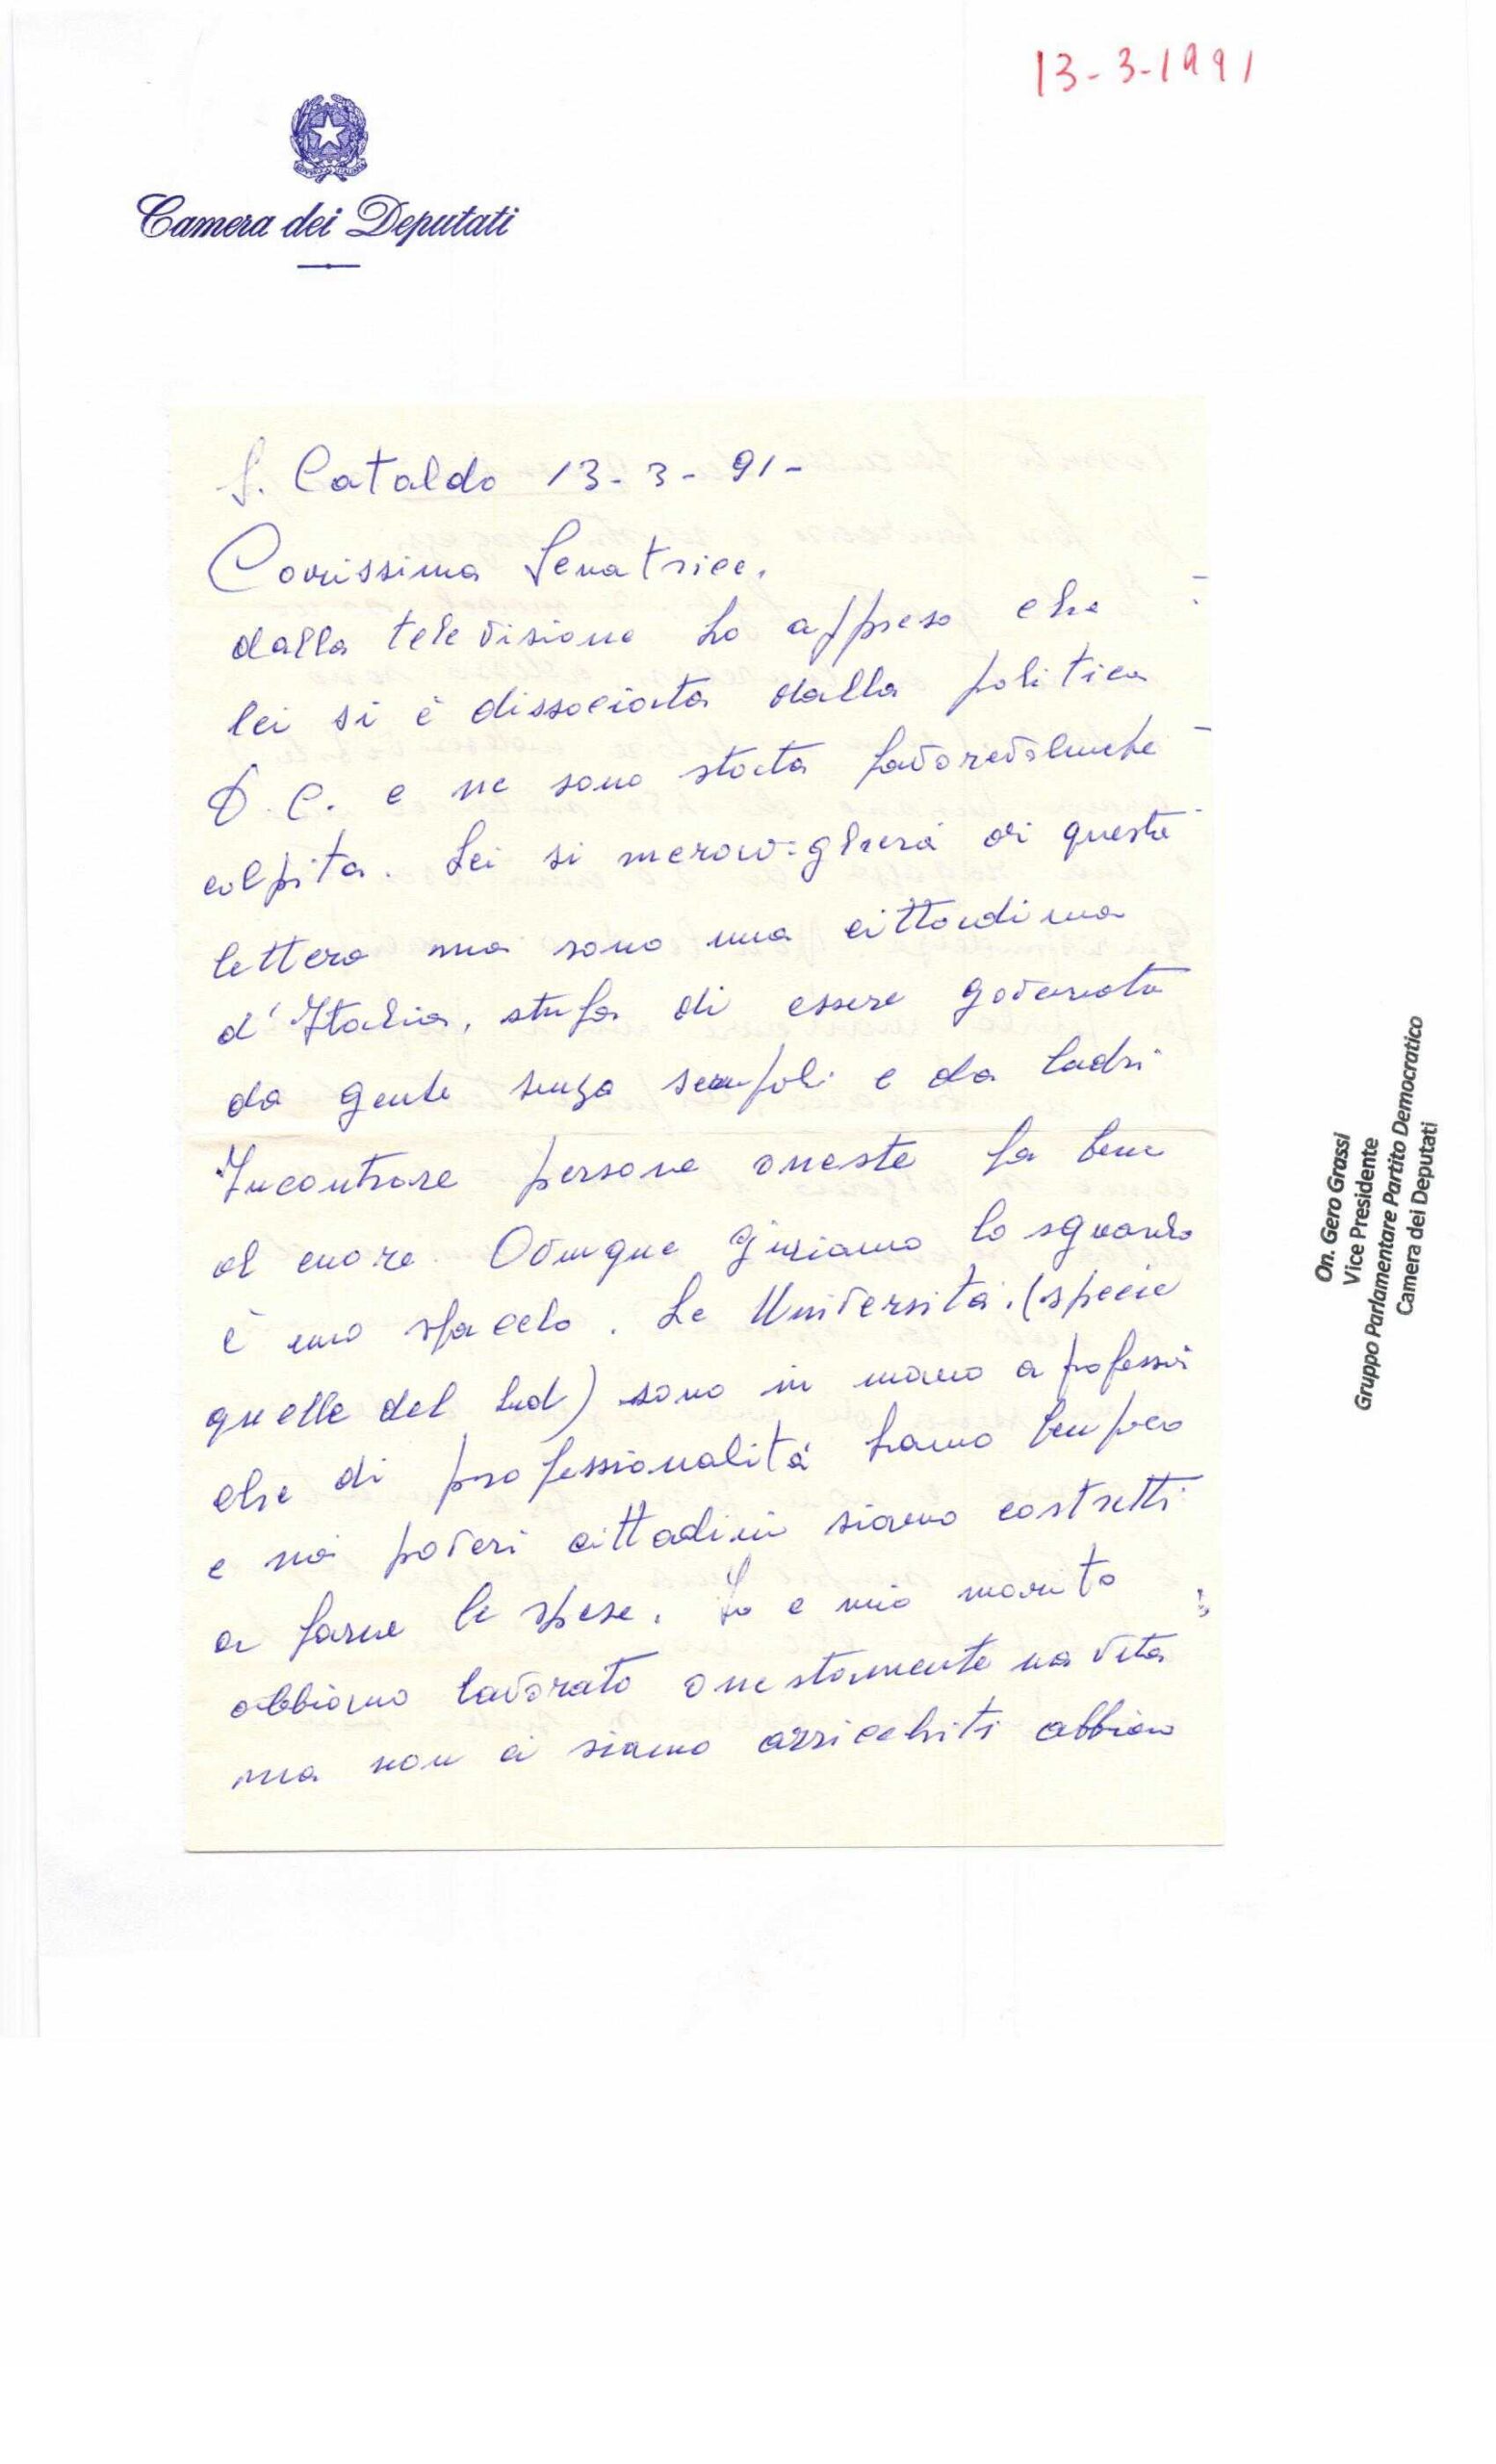 13-3-1991
Camera dei Deputati
S. Cataldo 13-3-91-
Carissima Senatrice,
dalla televisione ho appreso che
lei si è dissociata dalla politica
D.C. e ne sono stata favorevolmente
colpita. Lei si meraviglierà di questa
lettera ma sono una cittadina
d'Italia, stufa di essere governata
da gente senza scrupoli e da ladri
Incontrare persone oneste fa bene
al cuore. Ovunque giriamo lo sguardo
è uno sfacelo. Le Università (specie
quelle del Sud) sono in mano a professori
che di professionalità hanno ben poco
e noi poveri cittadini siamo costretti
a farne le spese. Io e mio marito
abbiamo lavorato onestamente na vita
ma non ci siamo arricchiti abbiamo
On. Gero Grassi
Vice Presidente
Gruppo Parlamentare Partito Democratico
Camera dei Deputati